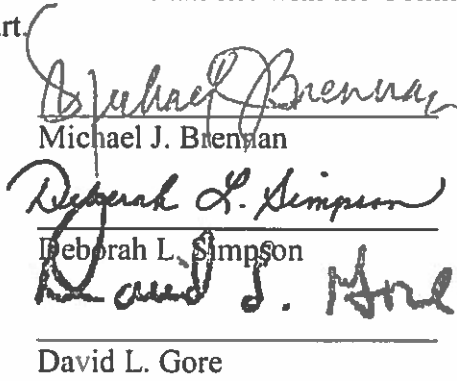 with the
art.
Michael J Brennan
Michael J. Brennan
Deborah L. Simpson
Deborah L. Simpson
David L. Gore
David L. Gore